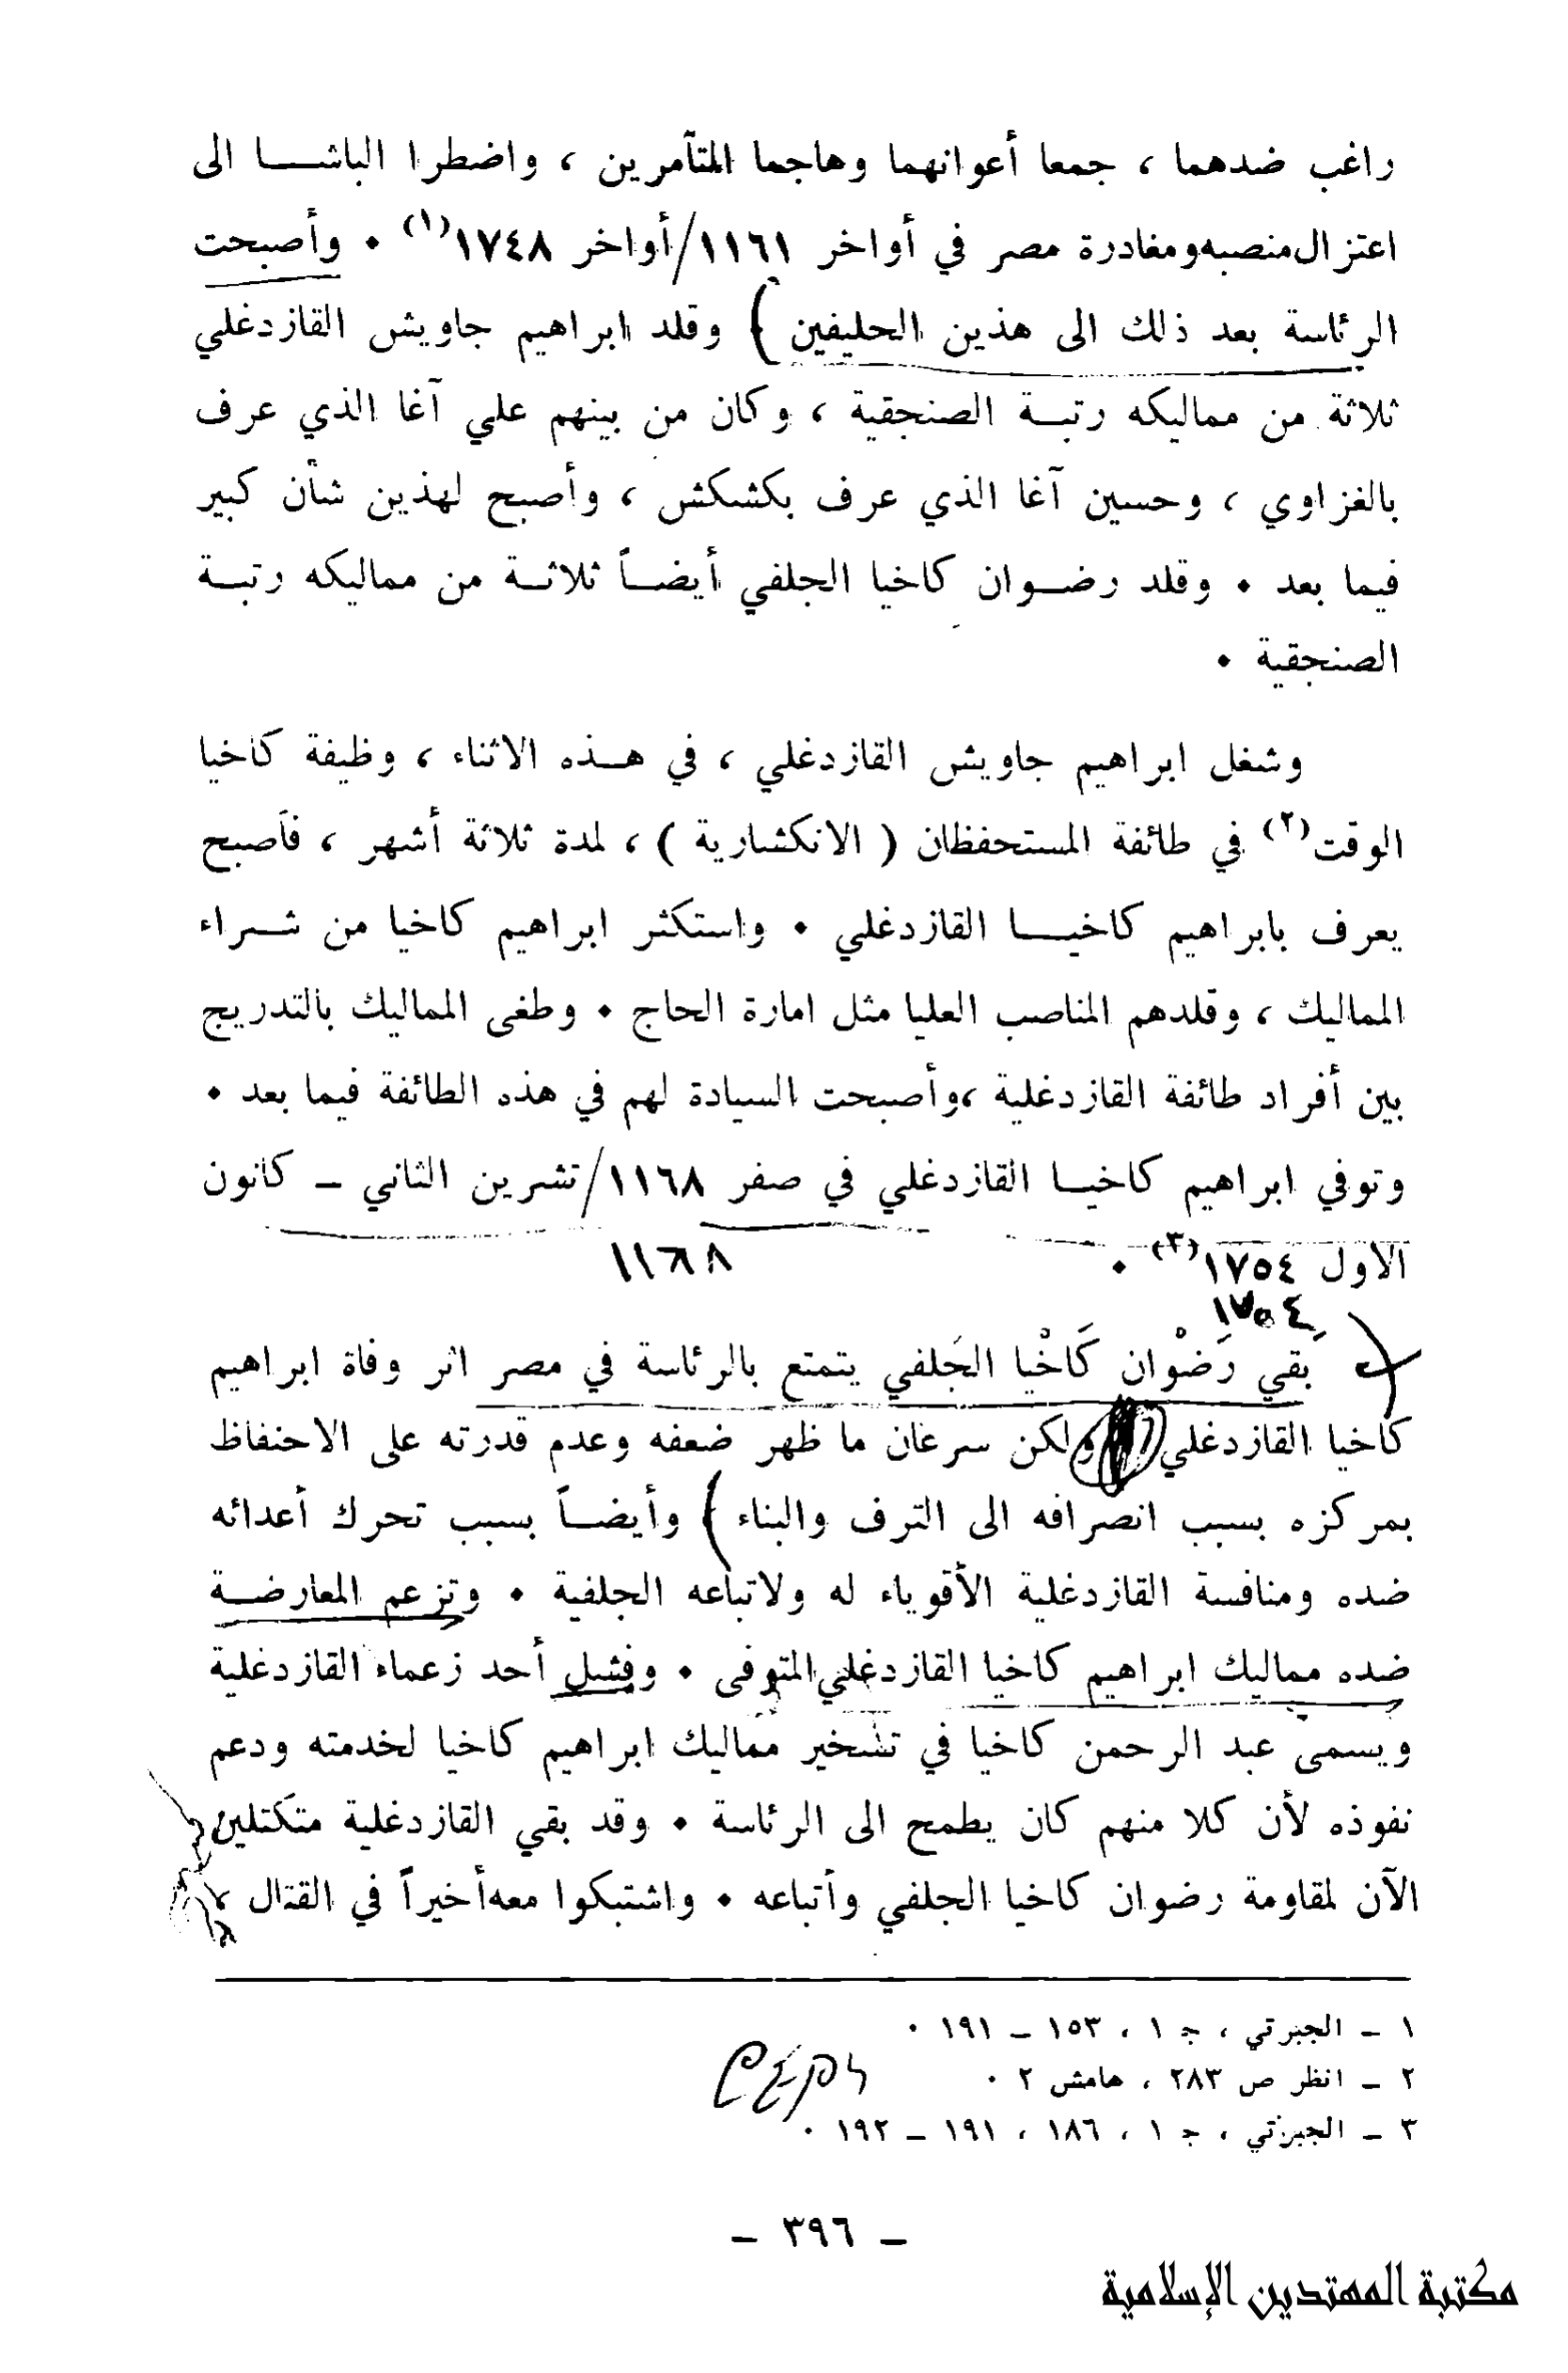 راغب ضدهما ، جمعا أعوانهما وهاجما المتآمرين ، واضطرا الباشا الى
اعتزال منصبه ومغادرة مصر في أواخر ١١٦١/أواخر ١٧٤٨(١) ٠ وأصبحت
الرئاسة بعد ذلك الى هذين الحليفين ) وقلد ابراهيم جاويش القازدغلي
ثلاثة من مماليكه رتبة الصنجقية ، وكان من بينهم علي آغا الذي عرف
بالغزاوي ، وحسين آغا الذي عرف بكشكش ، وأصبح لهذين شأن كبير
فيما بعد ٠ وقلد رضوان كاخيا الجلفي أيضاً ثلاثة من مماليكه رتبة
الصنجقية ٠
وشغل ابراهيم جاويش القازدغلي ، في هذه الاثناء ، وظيفة كاخيا
الوقت(٢) في طائفة المستحفظان ( الانكشارية ) ، لمدة ثلاثة أشهر ، فأصبح
يعرف بابراهيم كاخيا القازدغلي ٠ واستكثر ابراهيم كاخيا من شراء
المماليك ، وقلدهم المناصب العليا مثل امارة الحاج ٠ وطغى المماليك بالتدريج
بين أفراد طائفة القازدغلية ،وأصبحت السيادة لهم في هذه الطائفة فيما بعد ٠
وتوفي ابراهيم كاخيا القازدغلي في صفر ١١٦٨/تشرين الثاني – كانون
الاول ١٧٥٤(٣) ٠ ١١٦٨
١٧٥٤
بقي رَضْوان كَاخْيا الجَلفي يتمتع بالرئاسة في مصر اثر وفاة ابراهيم
كاخيا القازدغلي ولكن سرعان ما ظهر ضعفه وعدم قدرته على الاحتفاظ
بمركزه بسبب انصرافه الى الترف والبناء ) وأيضاً بسبب تحرك أعدائه
ضده ومنافسة القازدغلية الأقوياء له ولاتباعه الجلفية ٠ وتزعم المعارضة
ضده مماليك ابراهيم كاخيا القازدغلي المتوفى ٠ وفشل أحد زعماء القازدغلية
ويسمى عبد الرحمن كاخيا في تسخير مماليك ابراهيم كاخيا لخدمته ودعم
نفوذه لأن كلا منهم كان يطمح الى الرئاسة ٠ وقد بقي القازدغلية متكتلين
الآن لمقاومة رضوان كاخيا الجلفي وأتباعه ٠ واشتبكوا معه أخيراً في القتال ،
١ – الجبرتي ، ج ١ ، ١٥٣ – ١٩١ ٠
٢ – انظر ص ٢٨٣ ، هامش ٢ ٠
٣ – الجبرتي ، ج ١ ، ١٨٦ ، ١٩١ – ١٩٢ ٠
– ٣٩٦ –
مكتبة المهتدين الإسلامية